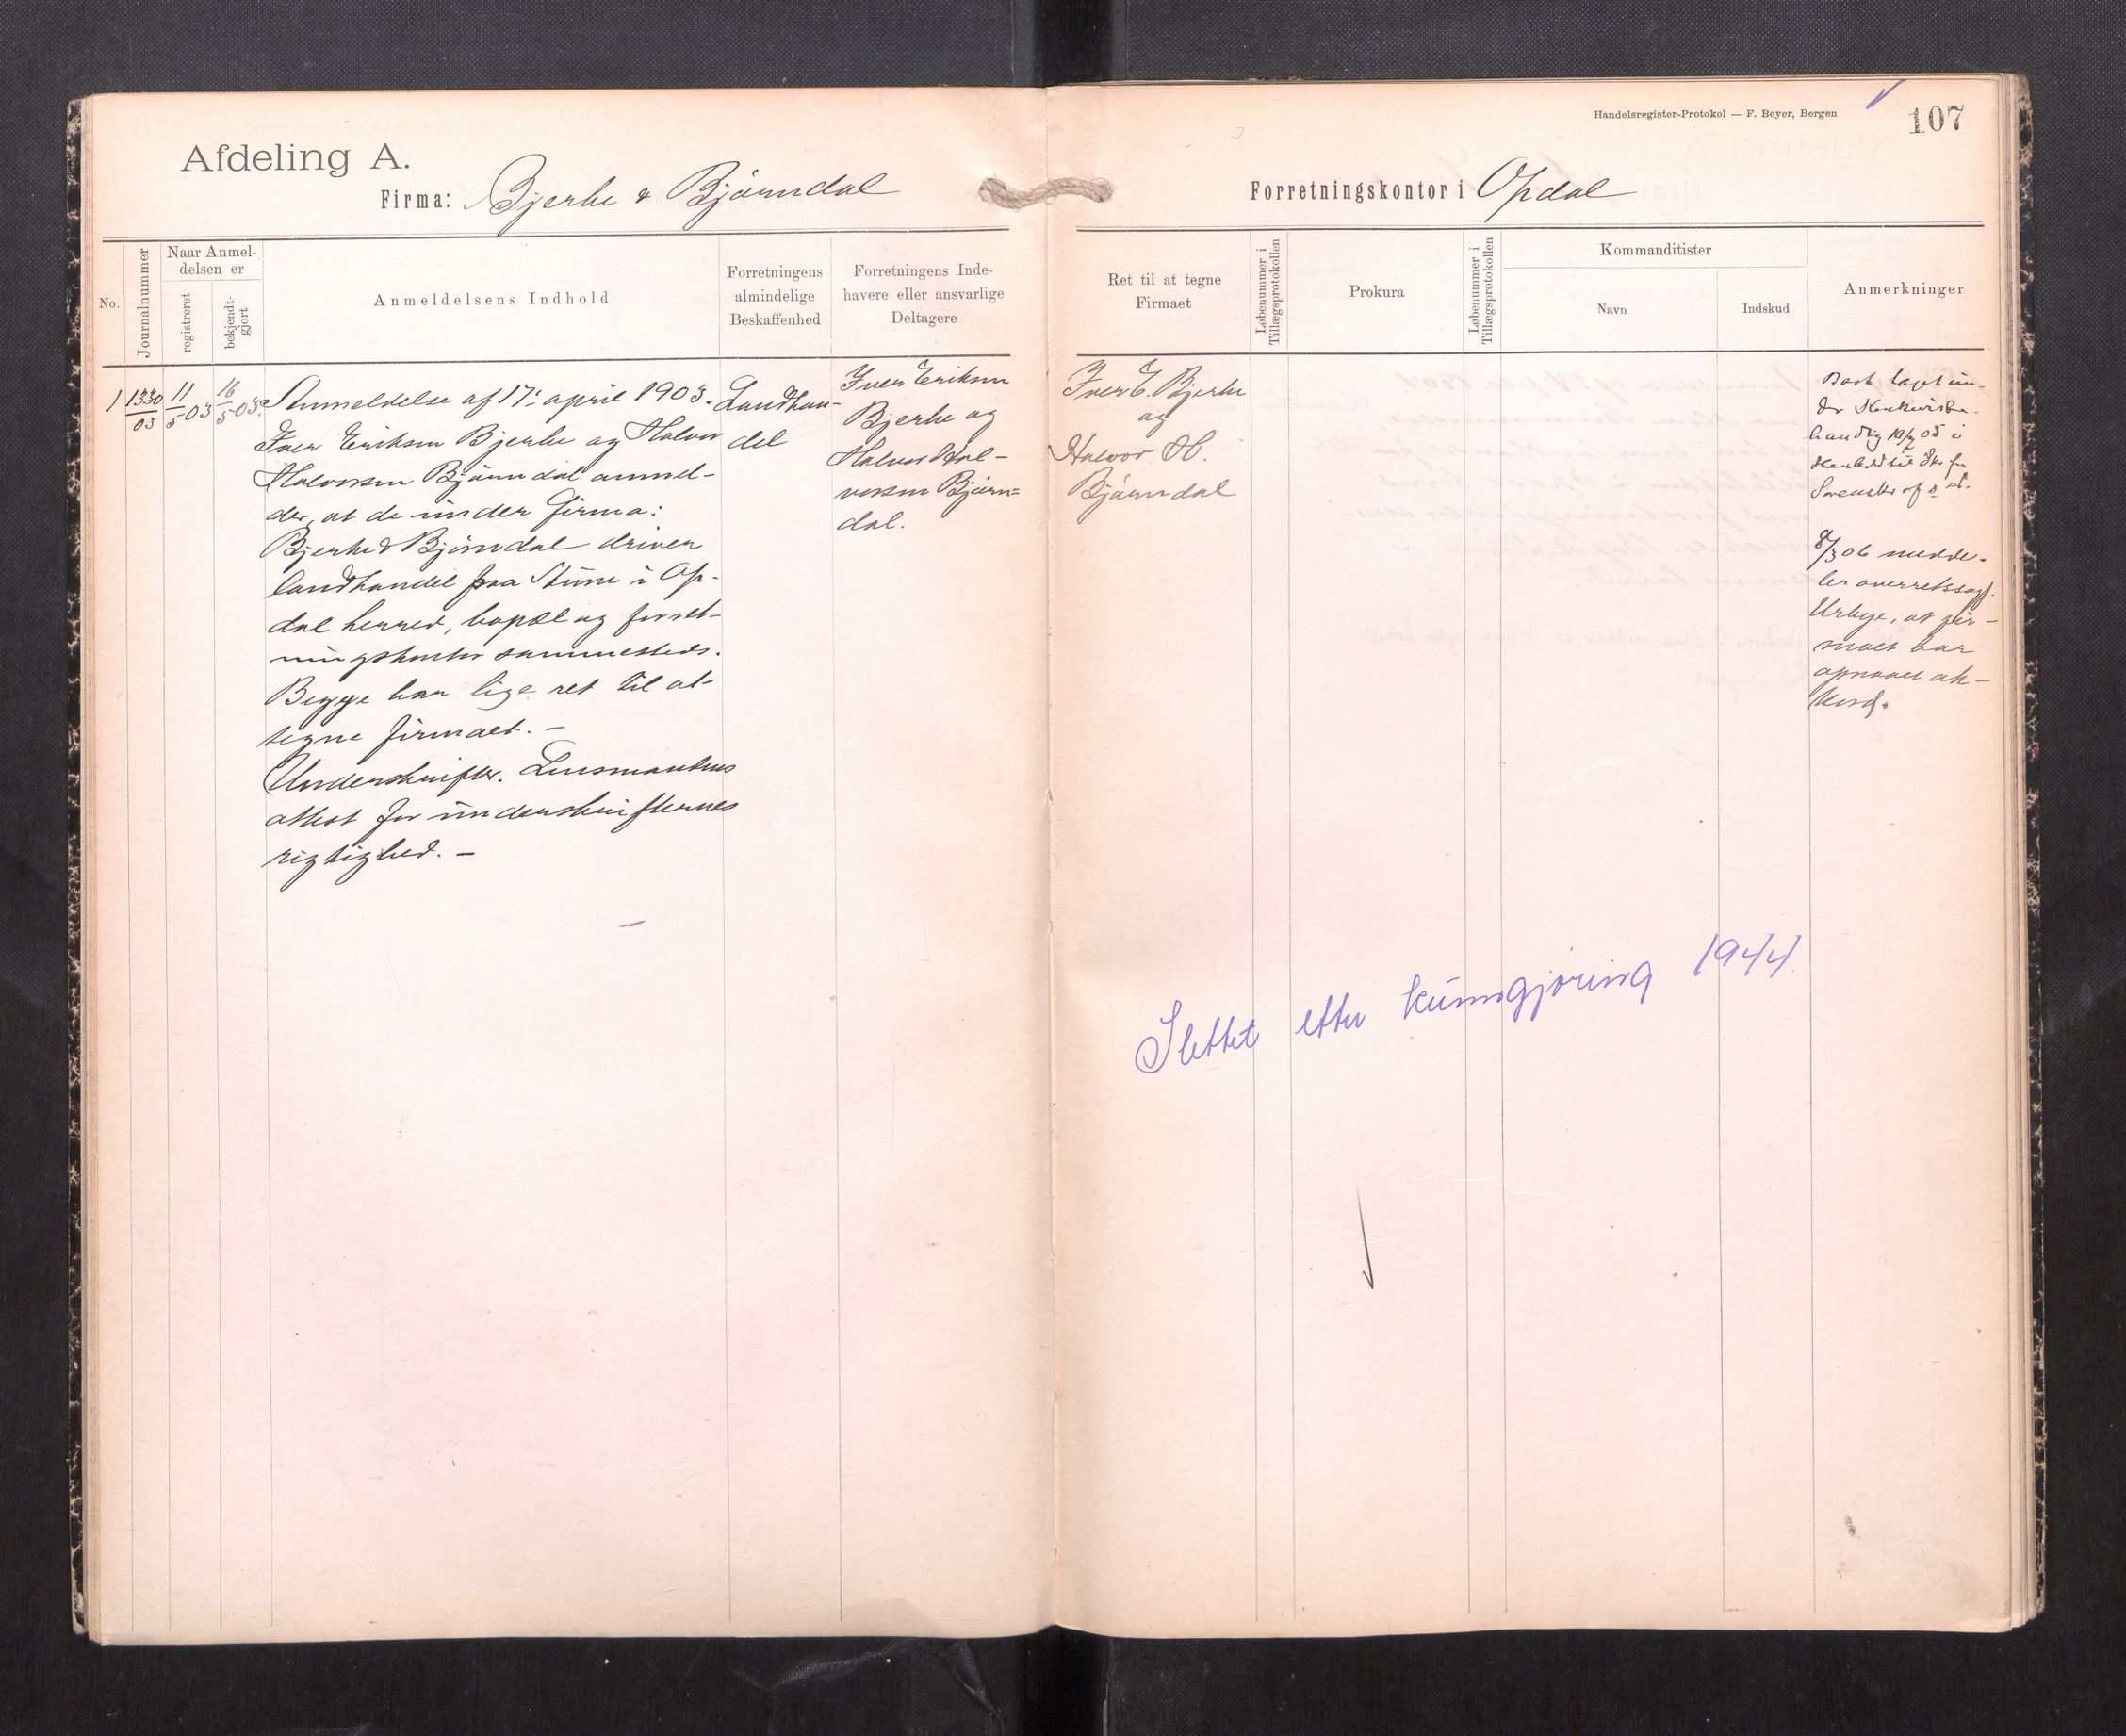 Handelsregister-Protokol — F. Beyer, Bergen
107
Afdeling A.
Firma: Bjerke & Bjørndal
Forretningskontor i Opdal
No.
Journalnummer
Naar Anmel-
delsen er
registreret
bekjendt-
gjort
Anmeldelsens Indhold
Forretningens
almindelige
Beskaffenhed
Forretningens Inde-
havere eller ansvarlige
Deltagere
Ret til at tegne
Firmaet
Løbenummer i
Tillægsprotokollen
Prokura
Løbenummer i
Tillægsprotokollen
Kommanditister
Navn
Indskud
Anmerkninger
1
1330
03
11/5-03
16/5-03
Anmeldelse af 17: april 1903.
Iver Eriksen Bjerke og Halvor
Halvorsen Bjørndal anmel-
der, at de under firma:
Bjerke & Bjørndal driver
landhandel paa Stüne i Op-
dal herred, bopæl og forret-
ningskontor sammesteds.
Begge har lige ret til at
tegne firmaet. —
Underskrifter. Lensmandens
attest for underskrifternes
rigtighed. —
Landhan-
del
Iver Eriksen
Bjerke og
Halvor Hal-
vorsen Bjørn=
dal.
Iver E. Bjerke
og
Halvor H.
Bjørndal
Boet taget un-
der Konkursbe-
handlg 05 i
Henhold til
8/3 06 medde-
ler overretssagf.
at fir-
maet har
opnaaet ak-
kord.
Slettet etter kunngjøring 1944.